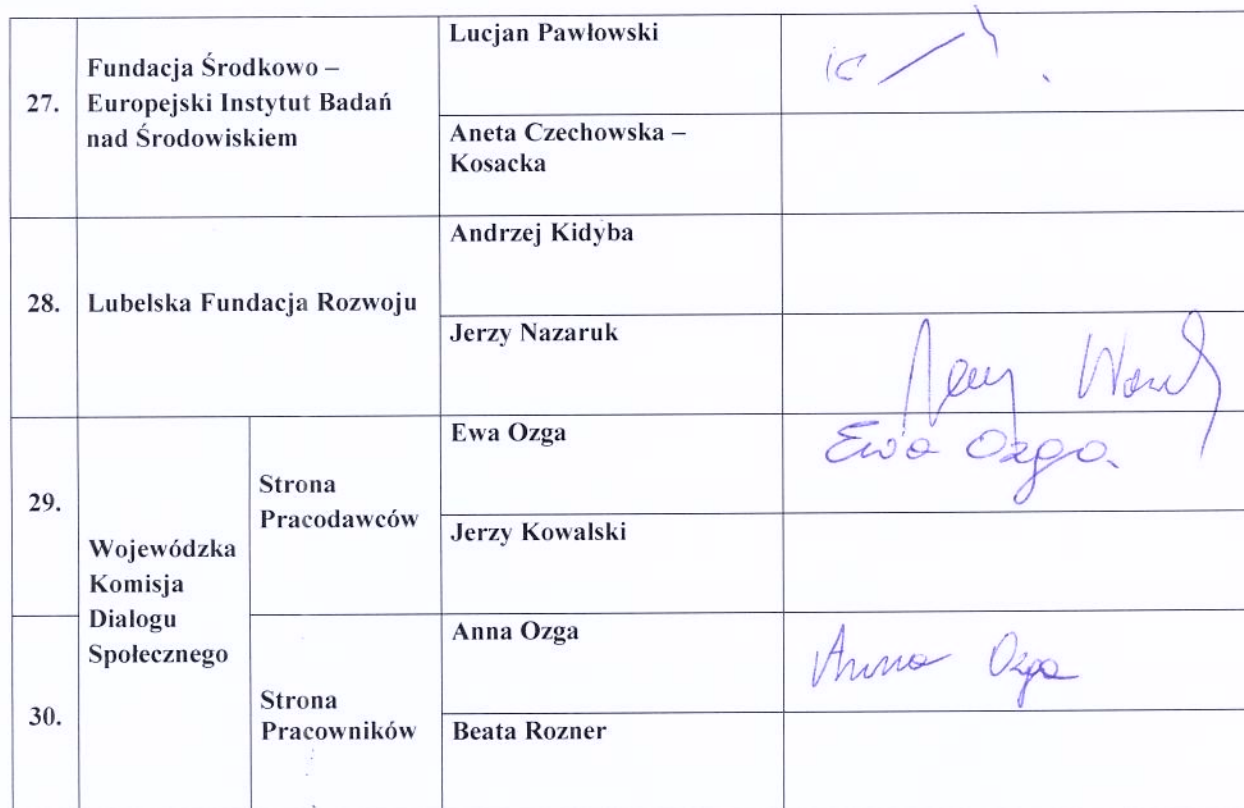 27.
Fundacja Środkowo –
Europejski Instytut Badań
nad Środowiskiem
Lucjan Pawłowski
Aneta Czechowska –
Kosacka
28.
Lubelska Fundacja Rozwoju
Andrzej Kidyba
Jerzy Nazaruk
29.
Wojewódzka
Komisja
Dialogu
Społecznego
Strona
Pracodawców
Ewa Ozga
Ewa Ozga
Jerzy Kowalski
30.
Strona
Pracowników
Anna Ozga
Anna Ozga
Beata Rozner